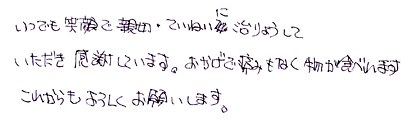 いつでも笑顔で親切・ていねいに治りょうして
いただき感謝しています。おかげで痛みもなく物が食べれます
これからもよろしくお願いします。